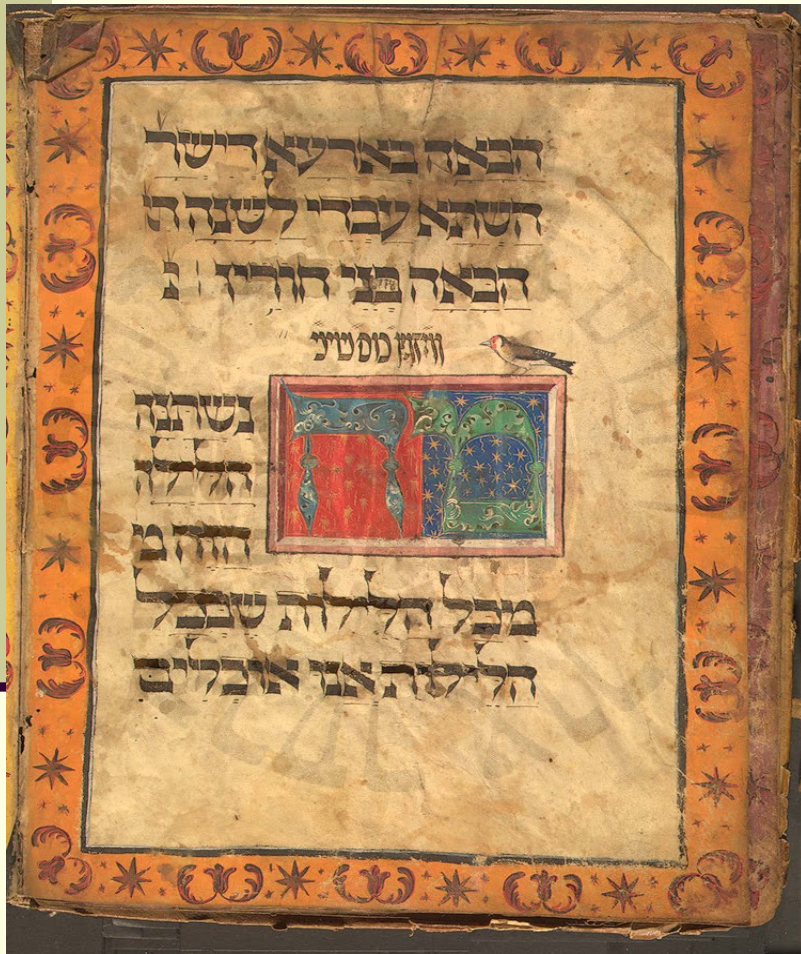 הבאה בארעא דישר
השתא עבדי לשנה
הבאה בני חורין
כוס שיני
מה נשתנה
הלילה
הזה מ
מכל הלילות שבכל
הלילות אנו אוכלים